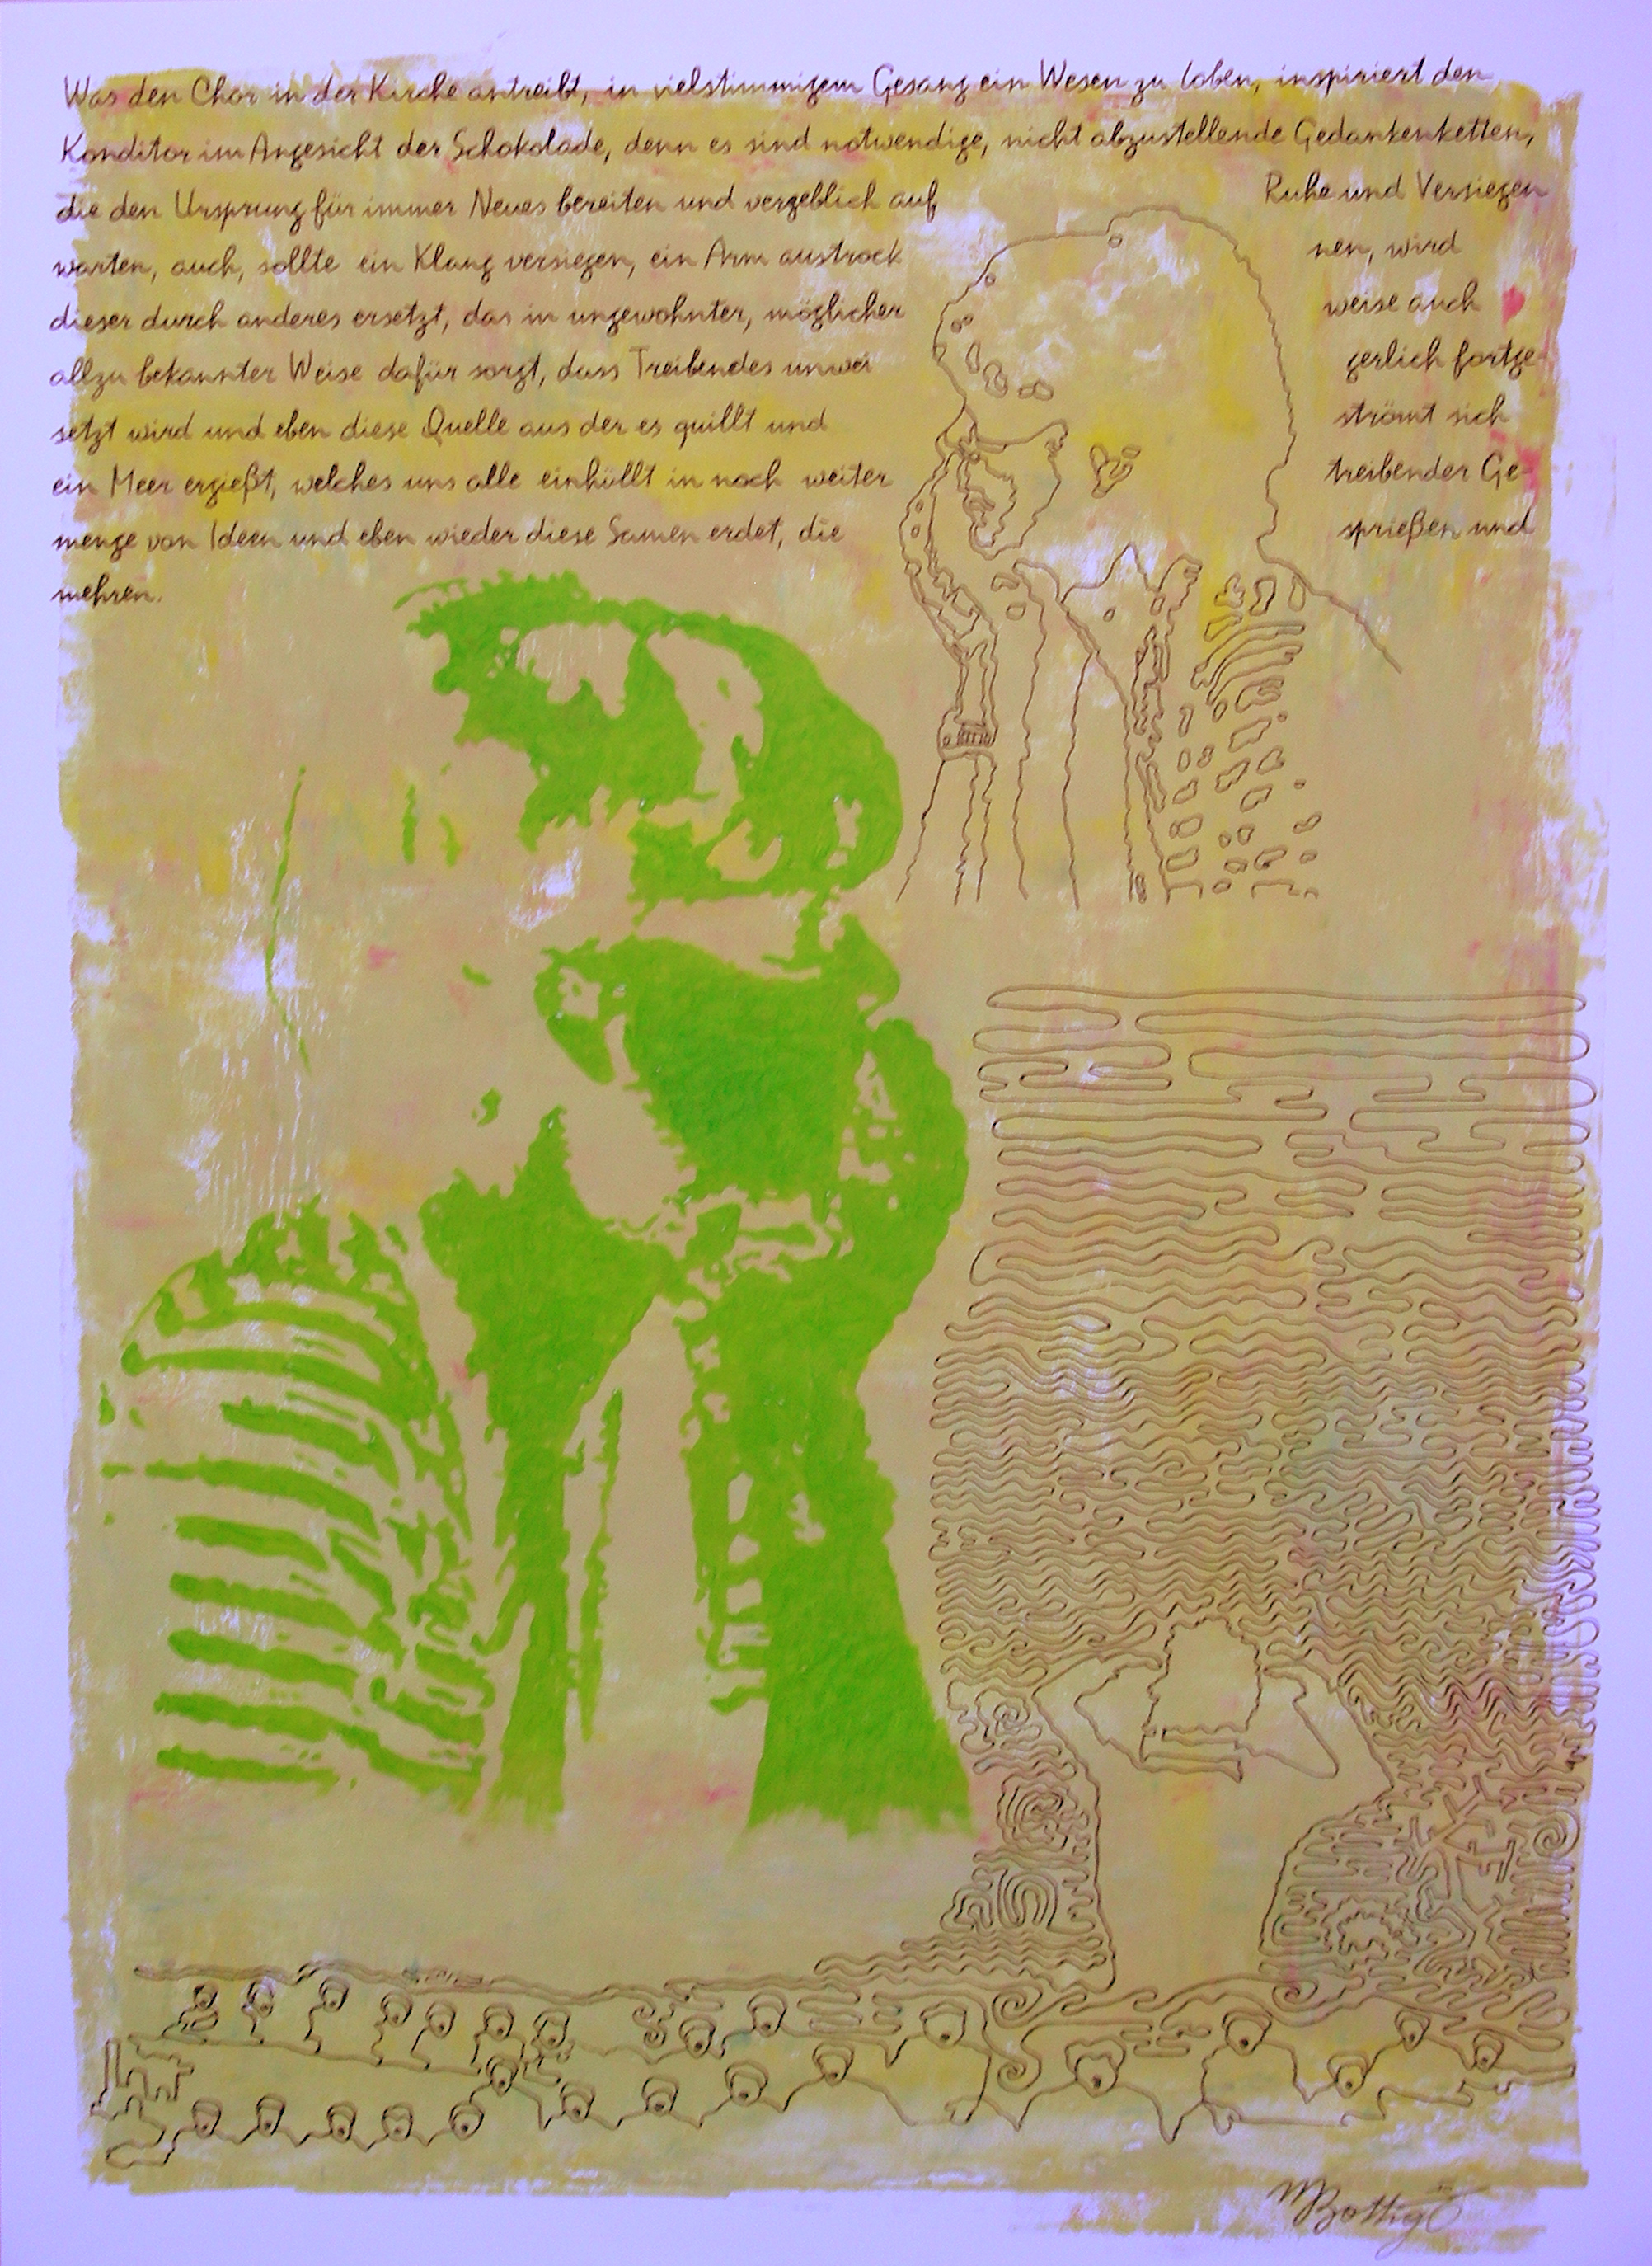 Was den Chor in der Kirche antreibt, in vielstimmigem Gesang ein Wesen zu loben, inspiriert den
Konditor im Angesicht der Schokolade, denn es sind notwendige, nicht abzustellende Gedankenketten,
die den Ursprung für immer Neues bereiten und vergeblich auf Ruhe und Versiegen
warten, auch, sollte ein Klang versiegen, ein Arm austrock nen, wird
dieser durch anderes ersetzt, das in ungewohnter, möglicher weise auch
allzu bekannter Weise dafür sorgt, dass Treibendes unwei gerlich fortge-
setzt wird und eben diese Quelle aus der es quillt und strömt sich
ein Meer ergießt, welches uns alle einhüllt in noch weiter treibender Ge-
menge von Ideen und eben wieder diese Samen erdet, die sprießen und
mehren.
MBottig